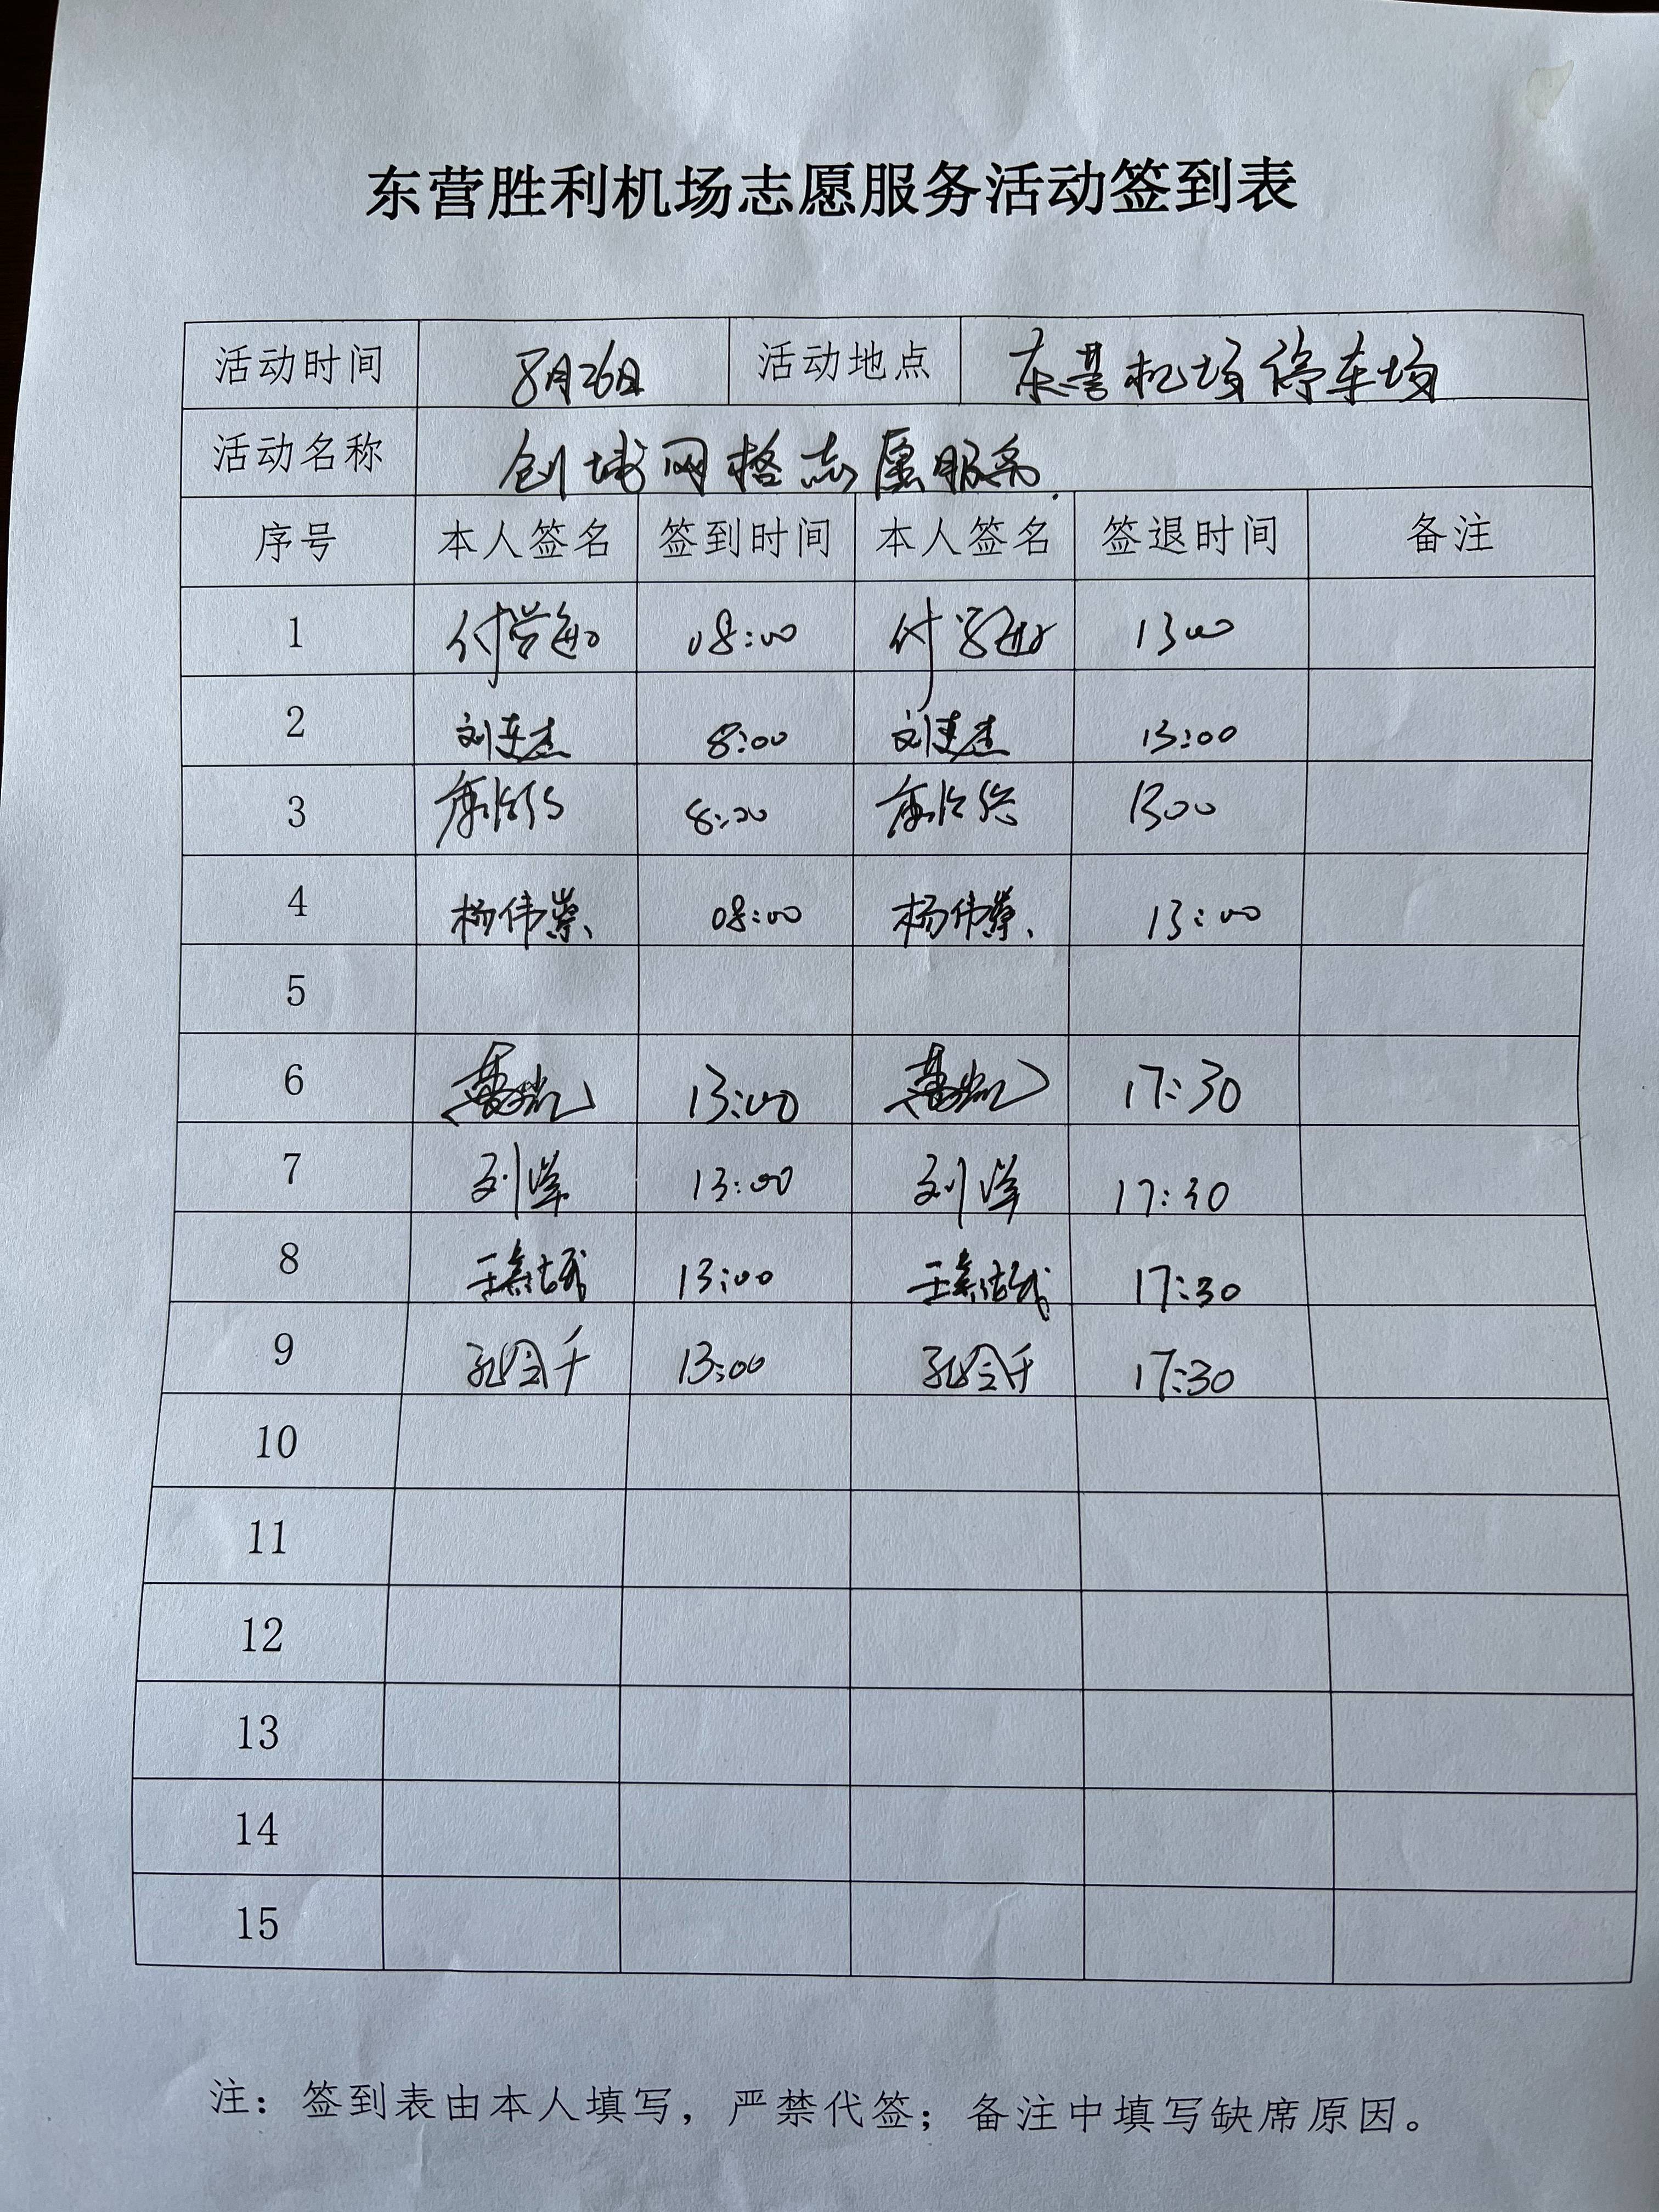 东营胜利机场志愿服务活动签到表
活动时间 8月26日 活动地点 东营机场停车场
活动名称 创城网格志愿服务
序号 本人签名 签到时间 本人签名 签退时间 备注
1 08:00 1300
2 8:00 13:00
3 8:00 1300
4 杨伟 08:00 杨伟 13:00
5
6 13:00 17:30
7 刘 13:00 刘 17:30
8 王 13:00 王 17:30
9 孔令千 13:00 孔令千 17:30
10
11
12
13
14
15
注：签到表由本人填写，严禁代签；备注中填写缺席原因。